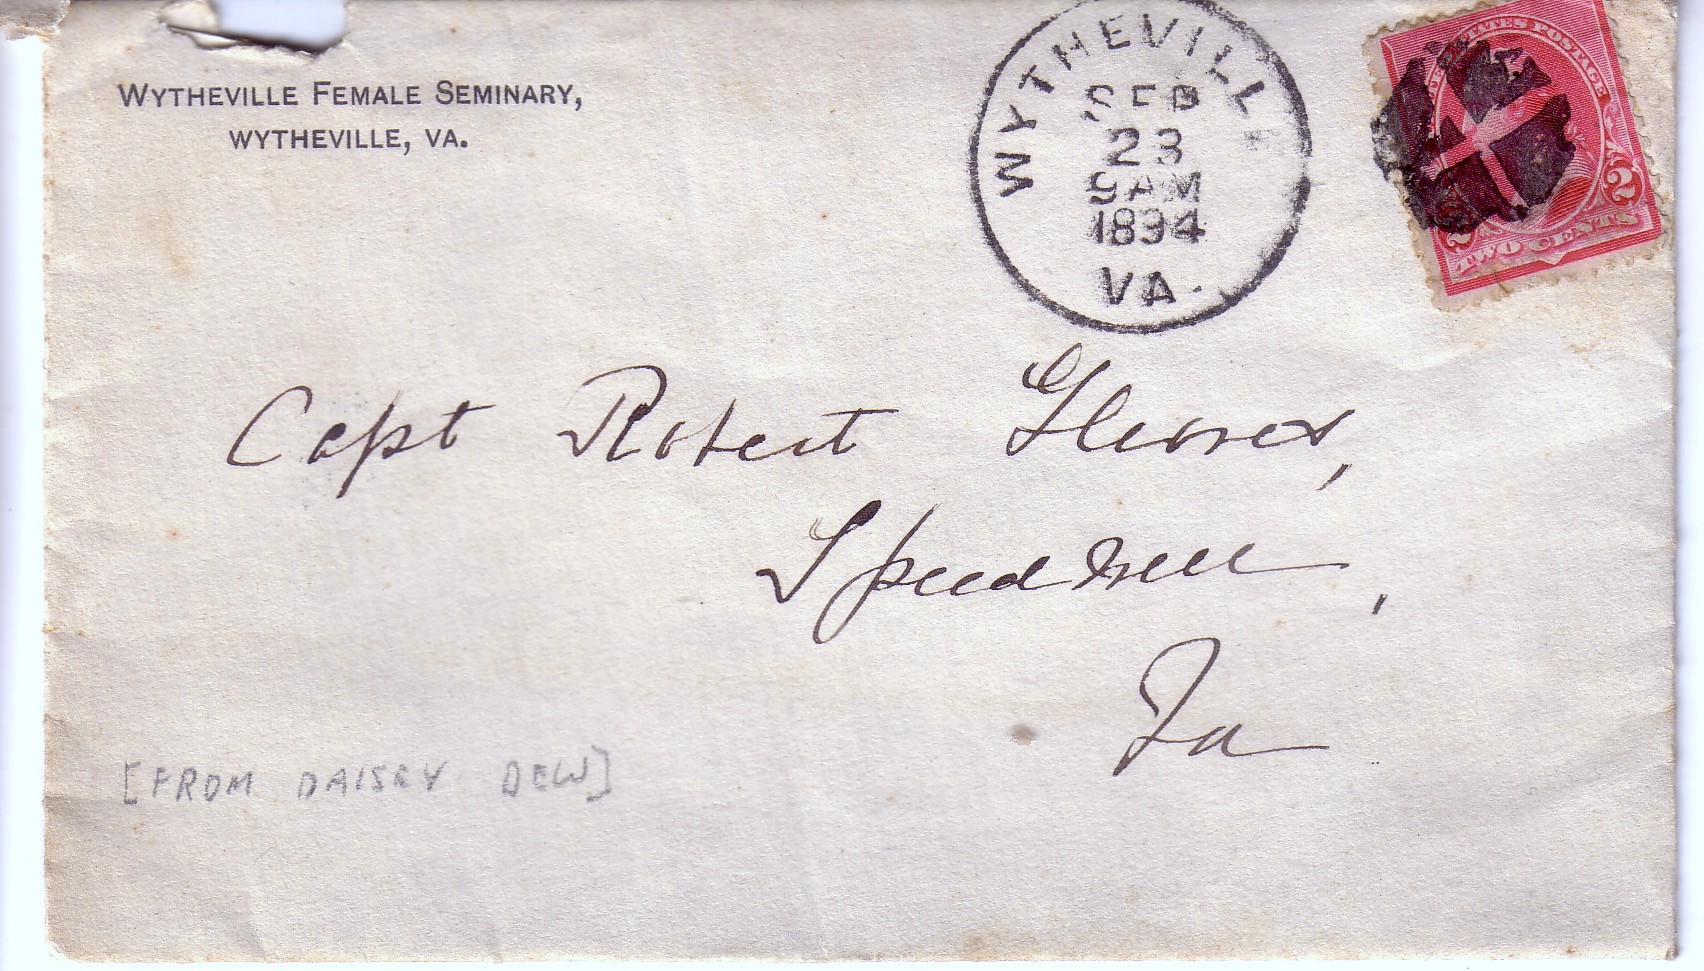 WYTHEVILLE FEMALE SEMINARY,
WYTHEVILLE, VA.
WYTHEVILLE
SEP
23
9AM
1894
VA.
STATES POSTAGE
2 2
TWO CENTS
Capt Robert
Speedwell,
Va
[FROM DAISEY DEW]